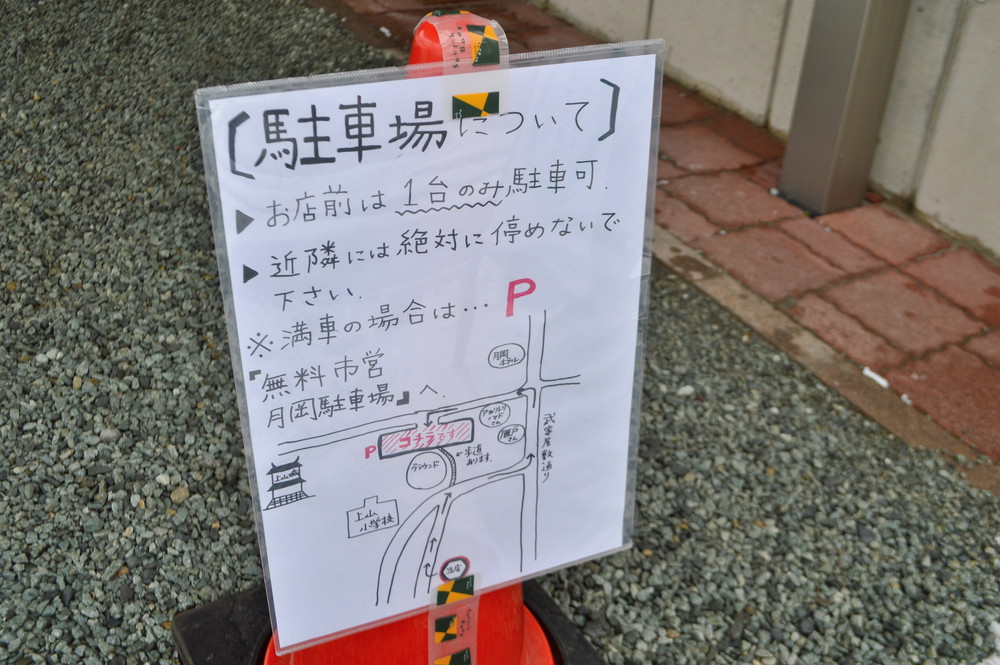 【駐車場について】
▶お店前は1台のみ駐車可.
▶近隣には絶対に停めないで
下さい.
※満車の場合は…
『無料市営
月岡駐車場』へ.
P
月岡
ホテル
P
コチラです
武家屋敷通り
グラウンド
↑歩道
あります.
上山城
上山
小学校
当店